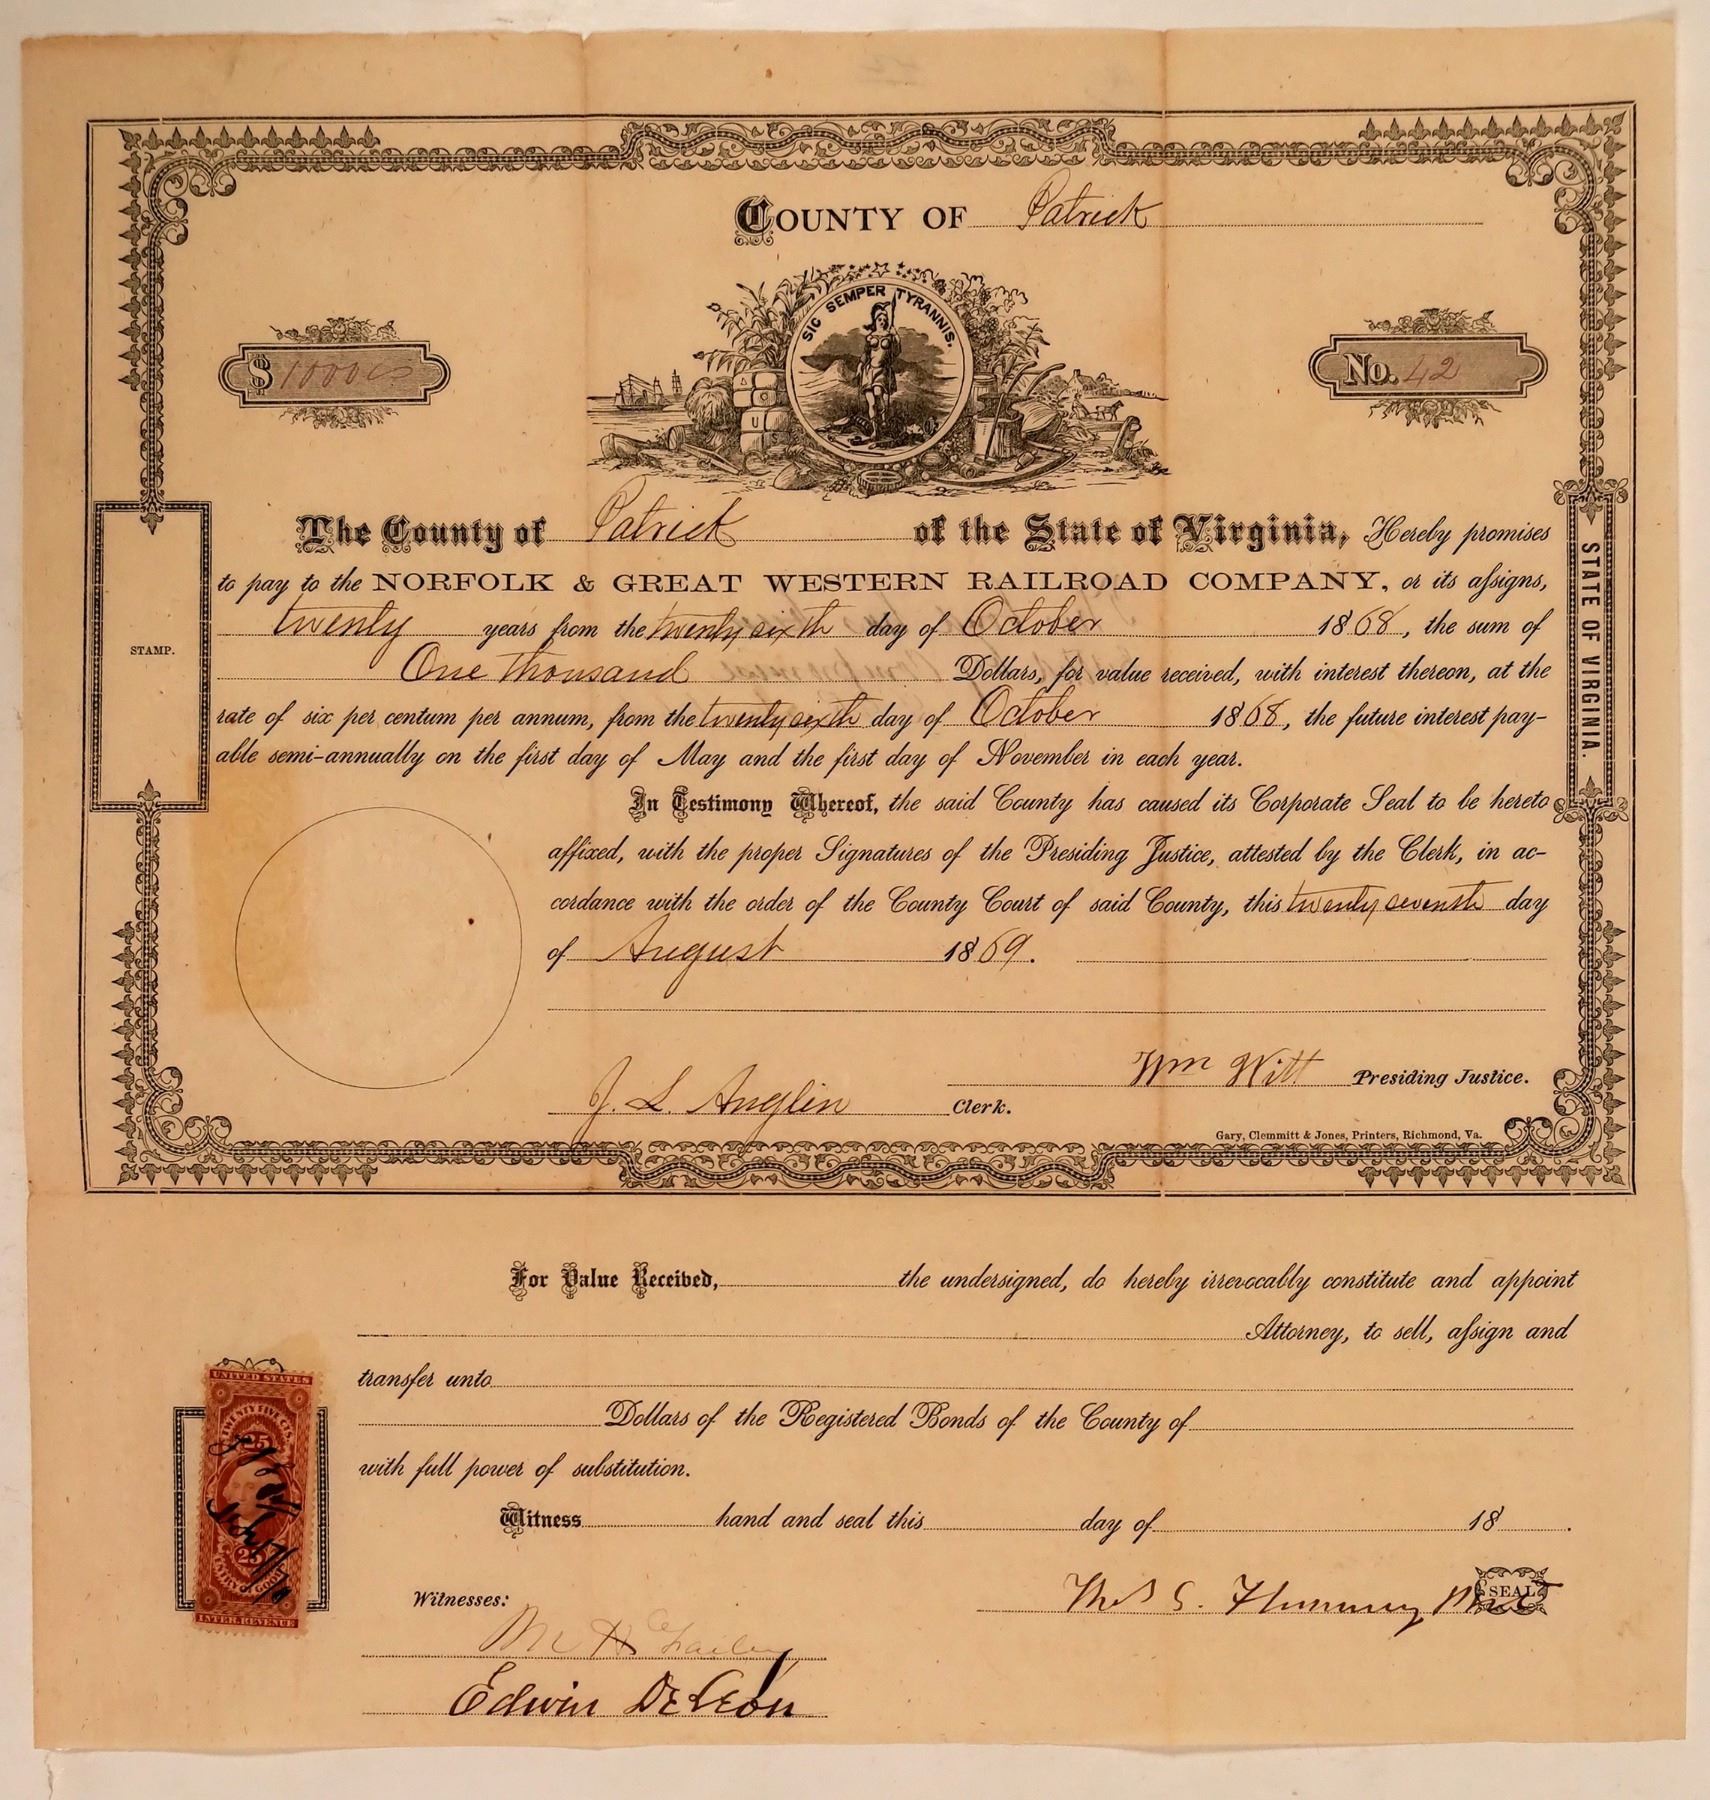 COUNTY OF Patrick
SIC SEMPER TYRANNIS.
$ 1000
No. 42
The County of Patrick of the State of Virginia, Hereby promises
to pay to the NORFOLK & GREAT WESTERN RAILROAD COMPANY, or its assigns,
twenty years from the twenty sixth day of October 1868, the sum of
One thousand Dollars, for value received, with interest thereon, at the
rate of six per centum per annum, from the twenty sixth day of October 1868, the future interest pay-
able semi-annually on the first day of May and the first day of November in each year.
STAMP.
STATE OF VIRGINIA.
In Testimony Whereof, the said County has caused its Corporate Seal to be hereto
affixed, with the proper Signatures of the Presiding Justice, attested by the Clerk, in ac-
cordance with the order of the County Court of said County, this twenty seventh day
of August 1869.
Wm Witt Presiding Justice.
J. L. Anglin Clerk.
Gary, Clemmitt & Jones, Printers, Richmond, Va.
For Value Received, the undersigned, do hereby irrevocably constitute and appoint
Attorney, to sell, assign and
transfer unto
Dollars of the Registered Bonds of the County of
with full power of substitution.
Witness hand and seal this day of 18 .
UNITED STATES
TWENTY FIVE CTS.
25
25
INTER. REVENUE
Witnesses:
SEAL
Edwin DeLeon